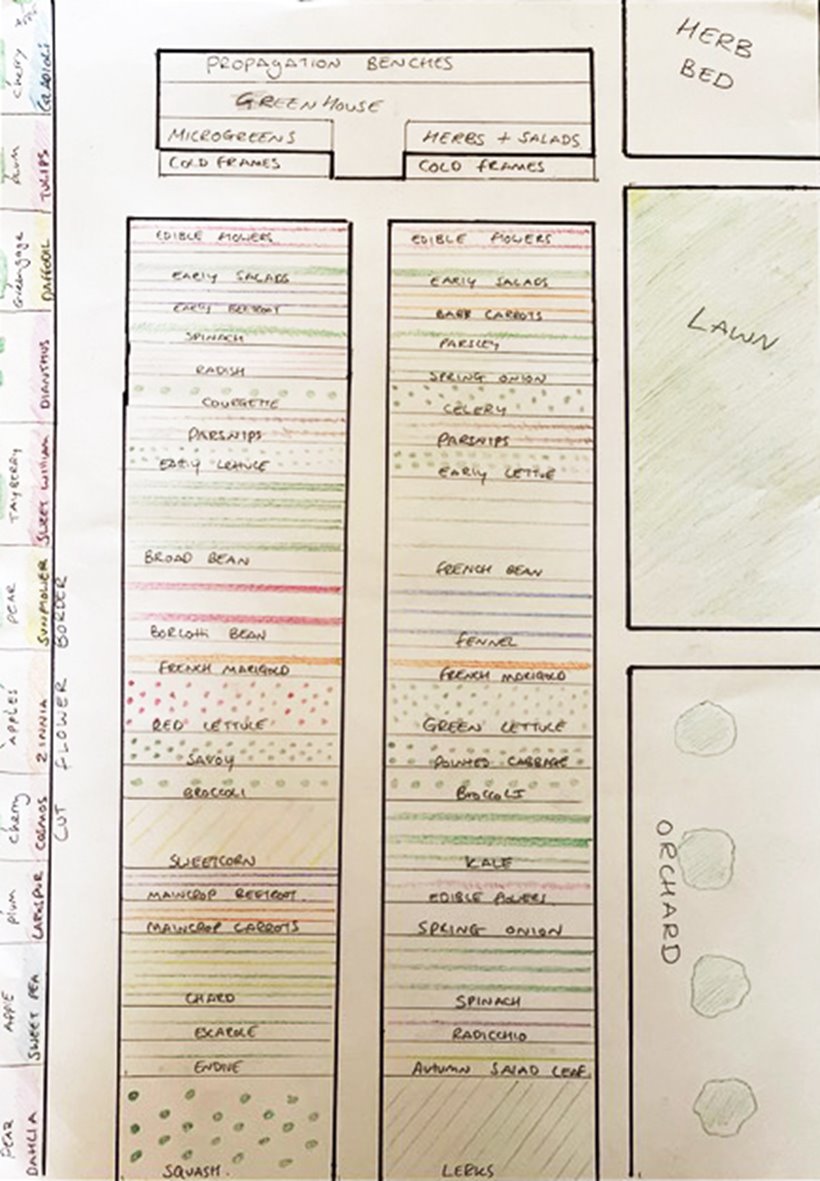 PROPAGATION BENCHES
GREENHOUSE
MICROGREENS
HERBS + SALADS
COLD FRAMES
COLD FRAMES
HERB
BED
LAWN
ORCHARD
EDIBLE FLOWERS
EARLY SALADS
EARLY BEETROOT
SPINACH
RADISH
COURGETTE
PARSNIPS
EARLY LETTUCE
BROAD BEAN
BORLOTTI BEAN
FRENCH MARIGOLD
RED LETTUCE
SAVOY
BROCCOLI
SWEETCORN
MAINCROP BEETROOT
MAINCROP CARROTS
CHARD
ESCAROLE
ENDIVE
SQUASH.
EDIBLE FLOWERS
EARLY SALADS
BABY CARROTS
PARSLEY
SPRING ONION
CELERY
PARSNIPS
EARLY LETTUE
FRENCH BEAN
FENNEL
FRENCH MARIGOLD
GREEN LETTUCE
POINTED CABBAGE
BROCCOLI
KALE
EDIBLE FLOWERS
SPRING ONION
SPINACH
RADICCHIO
AUTUMN SALAD LEAF
LEEKS
CUT FLOWER BORDER
Cherry
GLADIOLI
PLUM
TULIPS
Greengage
DAFFODIL
DIANTHUS
TAYBERRY
SWEET WILLIAM
PEAR
SUNFLOWER
APPLES
ZINNIA
Cherry
COSMOS
Plum
LARKSPUR
APPLE
SWEET PEA
PEAR
DAHLIA